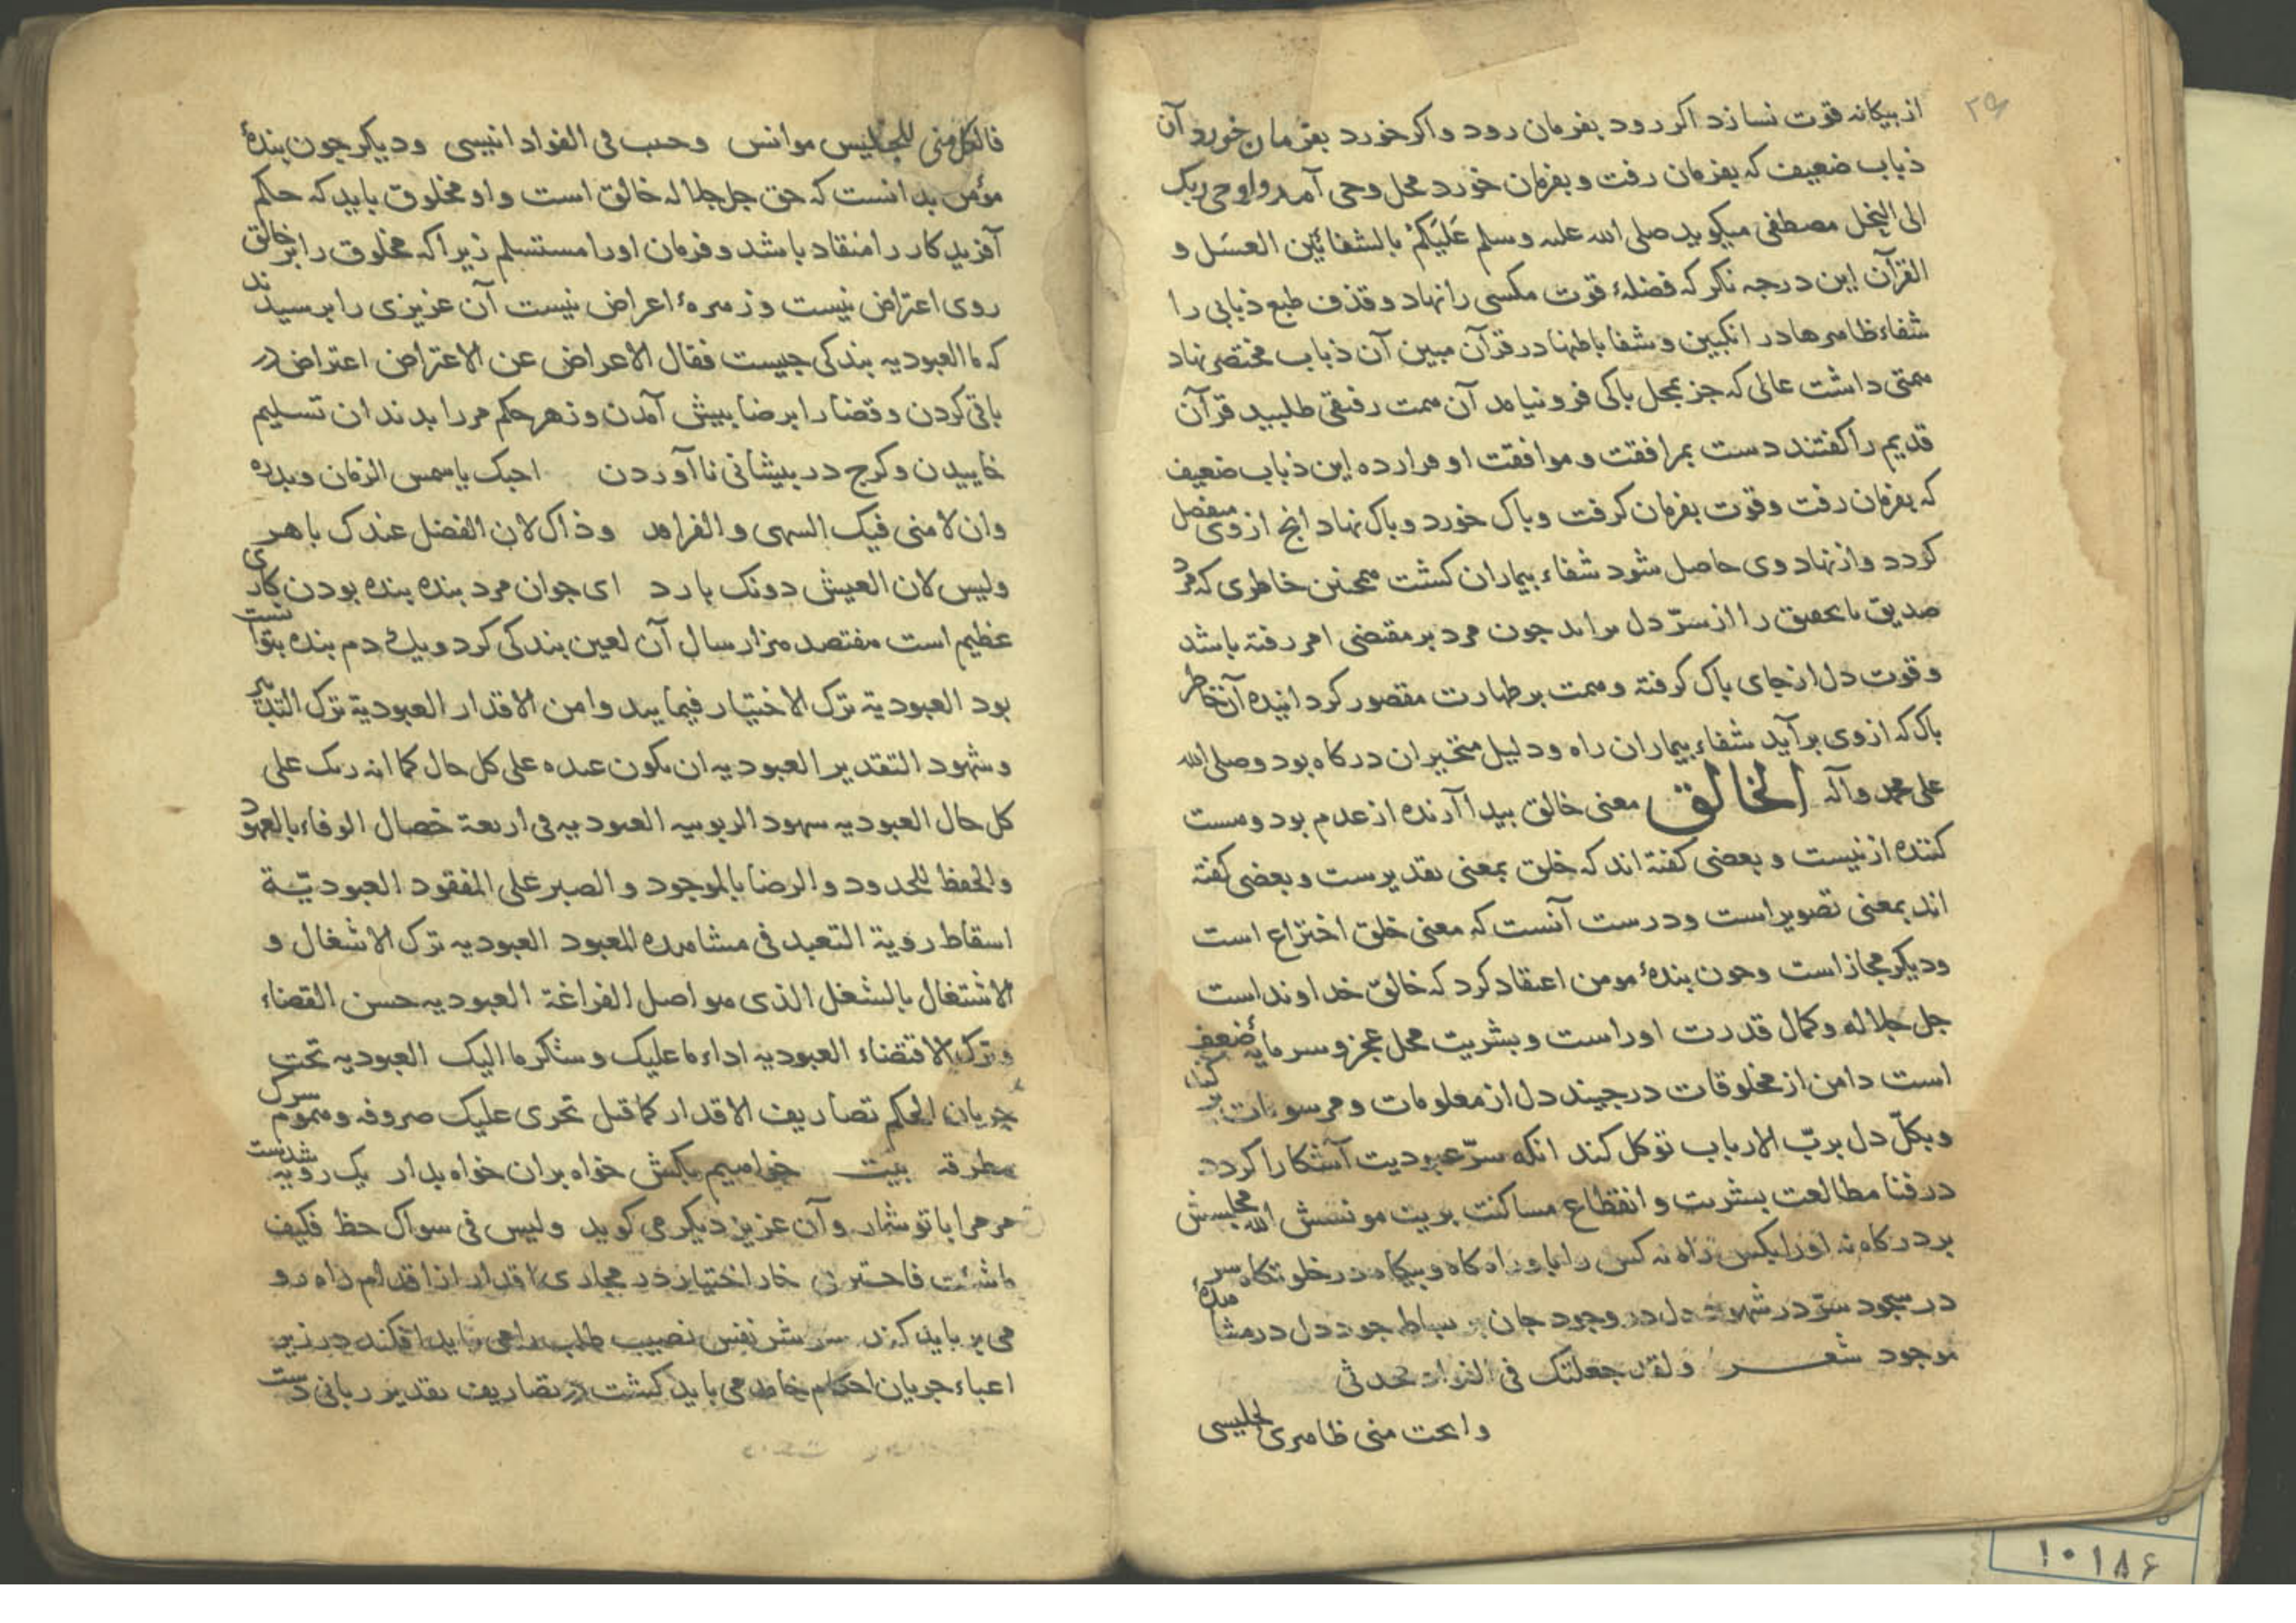 از بیکانه قوت نسازد اکر رود بفرمان رود واکر خورد بفرمان خورد آن
ذباب ضعیف که بفرمان رفت و بفرمان خورد محل وحی آمد واوحی ربک
الی النحل مصطفی میکوید صلی الله علیه وسلم عَلَیکُم بالشفائین العسَل و
القرآن این درجه نکر که فضلهٔ قوت مکسی را نهاد و قذف طبع ذبابی را
شفاء ظاهرها در انکبین و شفا باطنها در قرآن مبین آن ذباب مختصر نهاد
همتی داشت عالی که جز بمحل باکی فرو نیامد آن همت رفیقی طلبید قرآن
قدیم را کفتند دست بمرافقت و موافقت او فرا ده این ذباب ضعیف
که بفرمان رفت وقوت بفرمان کرفت وباک خورد وباک نهاد انج از وی منفصل
کردد واز نهاد وی حاصل شود شفاء بیماران کشت همچنین خاطری که مرد
صدیق با تحقیق را از سرّ دل براند جون مرد بر مقتضی امر رفته باشد
وقوت دل از جای باک کرفته وهمت بر طهارت مقصور کردانیده آن خاطر
باک که از وی برآید شفاء بیماران راه و دلیل متحیران درکاه بود وصلی الله
علی محمد وآله الخالق معنی خالق بیدا آرنده از عدم بود وهست
کننده از نیست و بعضی کفته اند که خلق بمعنی تقدیرست و بعضی کفته
اند بمعنی تصویر است ودرست آنست که معنی خلق اختراع است
ودیکر مجاز است وجون بندهٔ مومن اعتقاد کرد که خالق خداوند است
جل جلاله وکمال قدرت اوراست و بشریت محل عجز و سرمایهٔ ضعف
است دامن از مخلوقات درجیند دل از معلومات و مرسومات بر کند
وبکلّ دل بربّ الارباب توکل کند آنکه سرّ عبودیت آشکارا کردد
در فنا مطالعت بشریت و انقطاع مساکنت بریت مونسش الله مجلسش
بر درکاه نه اورا بکس راه نه کس را باو راه کاه وبیکاه در خلوتکاه سر
در سجود سرّ در شهود دل در وجود جان بر بساط جود دل در مشاهدهٔ
موجود شعر ولقد جعلتک فی الفواد محدثی
وابحت منی ظاهری لجلیسی
فالکل منی للجلیس موانس وحب فی الفواد انیسی ودیکر جون بندهٔ
مؤمن بدانست که حق جل جلاله خالق است واو مخلوق باید که حکم
آفریدکار را منقاد باشد و فرمان اورا مستسلم زیرا که مخلوق را بر خالق
روی اعتراض نیست و زهرهٔ اعراض نیست آن عزیزی را برسیدند
که ما العبودیه بندکی جیست فقال الاعراض عن الاعتراض اعتراض در
باقی کردن و قضا را برضا بیش آمدن و زهر حکم مر را بدندان تسلیم
خاییدن و کرج در بیشانی نا آوردن احبک یا شمس الزمان وبدره
وان لامنی فیک السهی والفراقد وذاک لان الفضل عندک باهر
ولیس لان العیش دونک بارد ای جوان مرد بنده بنده بودن کاری
عظیم است هفتصد هزار سال آن لعین بندکی کرد و یک دم بنده بتوانست
بود العبودیة ترک الاختیار فیما یبدوا من الاقدار العبودیة ترک التدبیر
وشهود التقدیر العبودیه ان تکون عبده علی کل حال کما انه ربک علی
کل حال العبودیه شهود الربوبیه العبودیه فی اربعة خصال الوفاء بالعهود
والحفظ للحدود والرضا بالموجود والصبر علی المفقود العبودیّة
اسقاط رویة التعبد فی مشاهده المعبود العبودیه ترک الاشغال و
الاشتغال بالشغل الذی هو اصل الفراغة العبودیه حسن القضاء
وترک الاقتضاء العبودیه اداء ما علیک وشکر ما الیک العبودیه تحت
جریان الحکم تصاریف الاقدار کما قیل تجری علیک صروفه وهموم سرک
مطرقه بیت خواهیم بکش خواه بران خواه بدار یک رویه شدست
مر مرا با تو شمار وآن عزیز دیکر می کوید ولیس فی سواک حظ فکیف
ما شئت فاختبرنی خار اختیار در مجاری اقدار از اقدام راه رو
می برباید کند سر شر نفس نصیب طلب را می باید افکند در زیر
اعباء جریان احکام خاطر می باید کشت در تصاریف تقدیر ربانی دست
۱۰۱۸۶